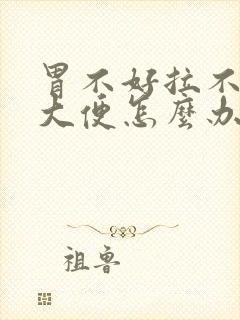 胃不好拉不
大便怎麼办
祖鲁